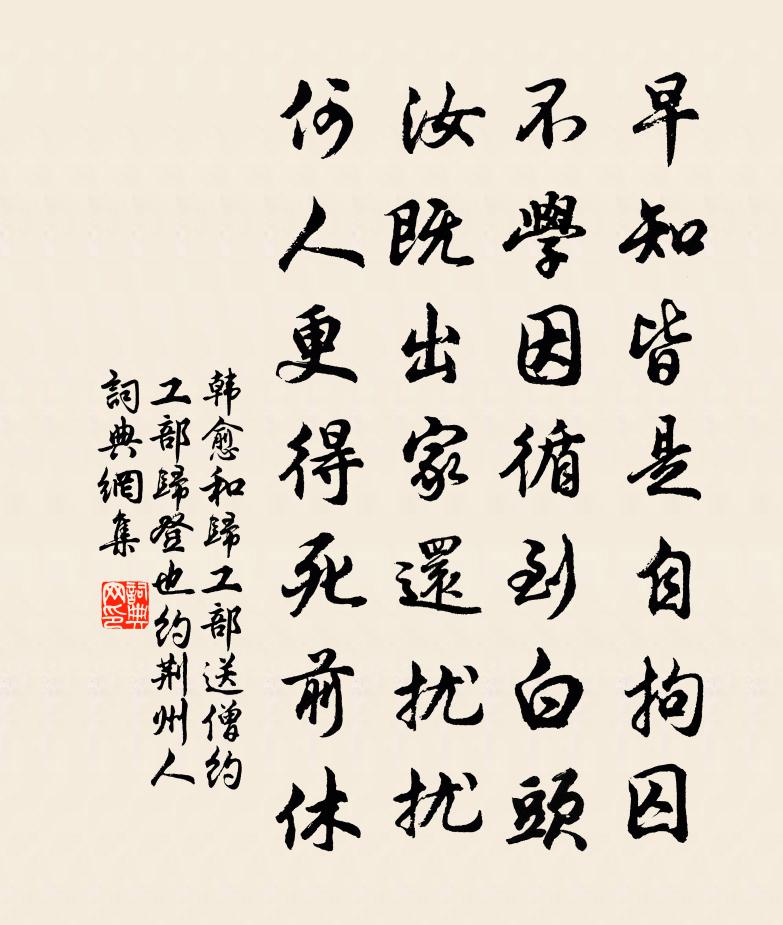 早知皆是自拘囚
不學因循到白頭
汝既出家還扰扰
何人更得死前休
韩愈和歸工部送僧約
工部歸登也约荆州人
詞典網集
詞典
网印